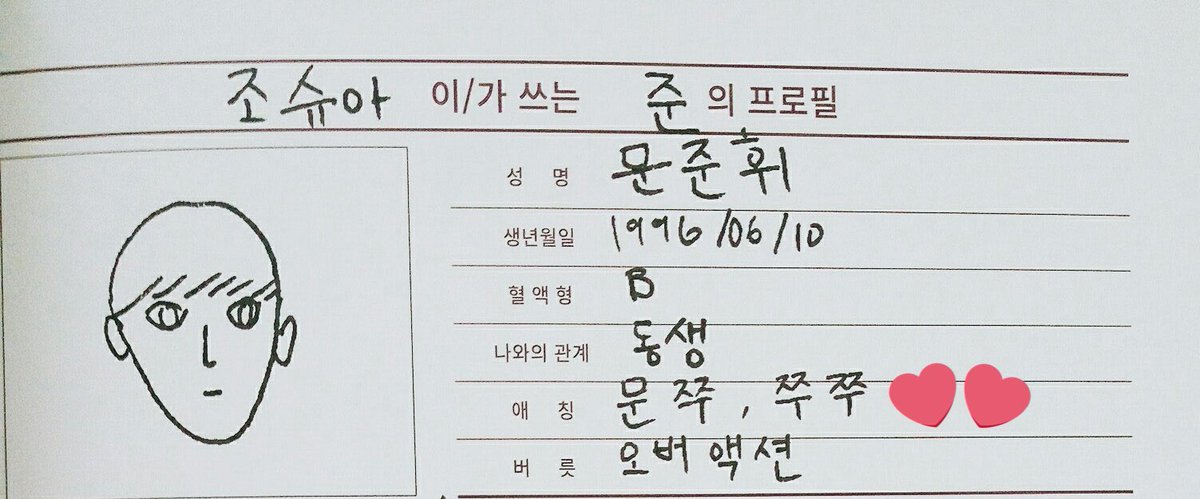 조슈아 이/가 쓰는 준의 프로필
성 명 문준휘
생년월일 1996/06/10
혈액형 B
나와의 관계 동생
애 칭 문쭈, 쭈쭈
버 릇 오버액션